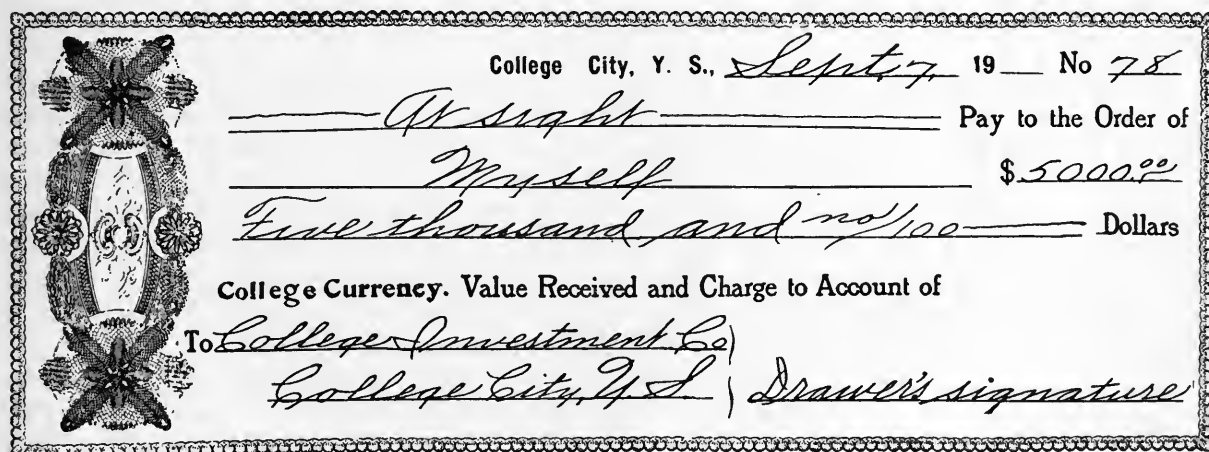 College City, Y. S., Sept. 7, 19__ No 78
At sight Pay to the Order of
Myself $ 5000.00
Five thousand and no/100 Dollars
College Currency. Value Received and Charge to Account of
To College Investment Co
College City, Y S Drawer's signature